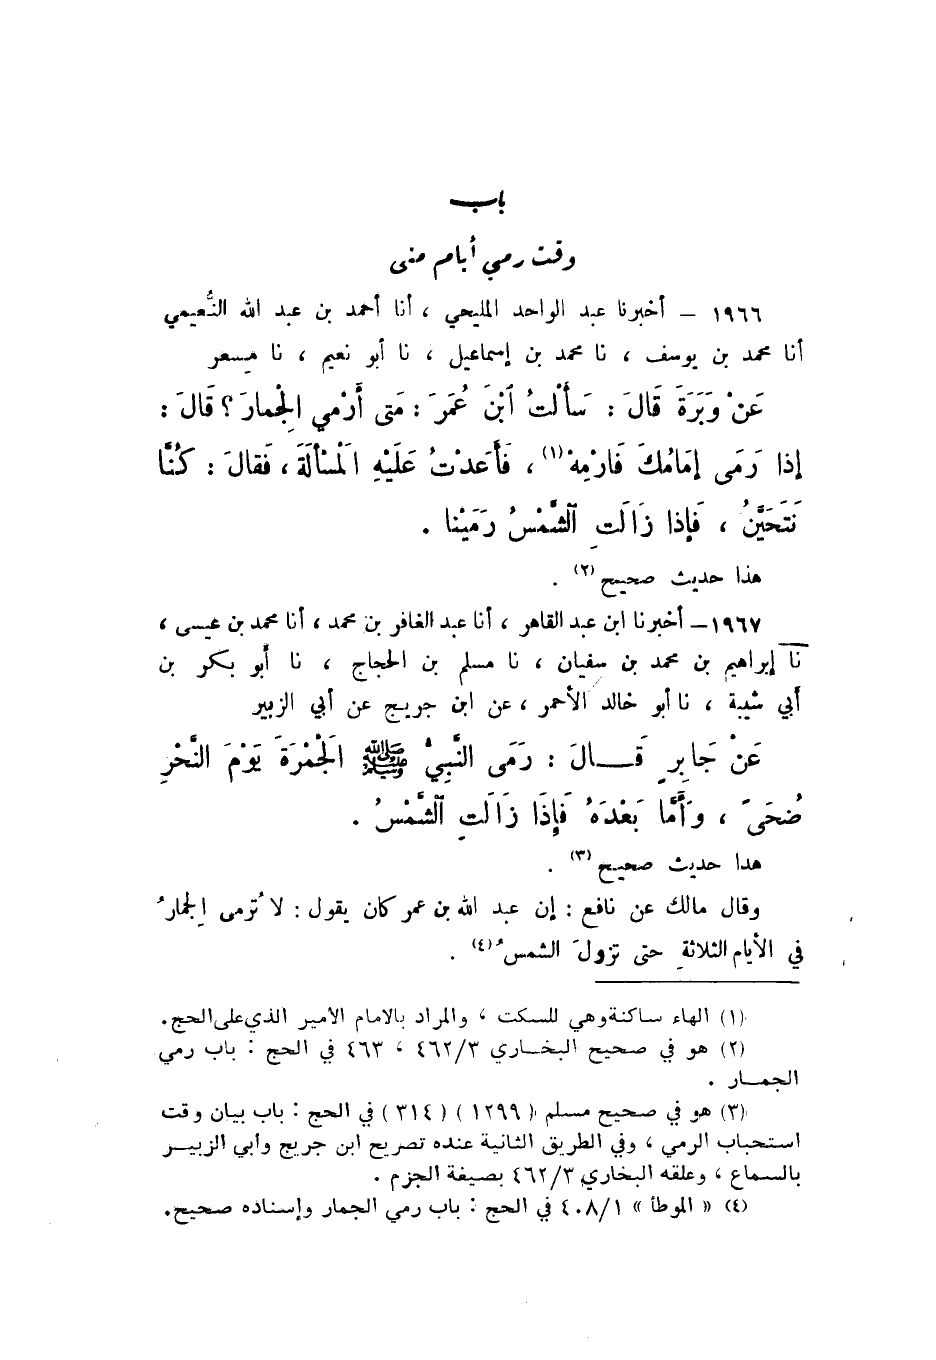 باب
وقت رمي أيام منى
١٩٦٦ – أخبرنا عبد الواحد المليحي ، أنا أحمد بن عبد الله النُّعيمي
أنا محمد بن يوسف ، نا محمد بن إسماعيل ، نا أبو نعيم ، نا مسعر
عَنْ وَبَرَةَ قَالَ : سَأَلْتُ ٱبْنَ عُمَرَ : مَتى أَرْمي الِجْمارَ ؟ قَالَ :
إذا رَمَى إمَامُكَ فَارْمِهْ(١) ، فَأَعَدْتُ عَلَيْهِ الْمَسْأَلَةَ ، فَقالَ : كُنَّا
نَتَحَيَّنُ ، فَإذا زَالَتِ الشَّمْسُ رَمَيْنا .
هذا حديث صحيح(٢) .
١٩٦٧ – أخبرنا ابن عبد القاهر ، أنا عبد الغافر بن محمد ، أنا محمد بن عيسى ،
نا إبراهيم بن محمد بن سفيان ، نا مسلم بن الحجاج ، نا أبو بكر بن
أبي شيبة ، نا أبو خالد الأحمر ، عن ابن جريج عن أبي الزبير
عَنْ جَابِرٍ قَــالَ : رَمَى النَّبِيُّ ﷺ الْجَمْرَةَ يَوْمَ النَّحْرِ
ضُحَىً ، وَأَمَّا بَعْدَهُ فَإِذَا زَالَتِ الشَّمْسُ .
هدا حديث صحيح(٣) .
وقال مالك عن نافع : إن عبد الله بن عمر كان يقول : لا تُرمى الِجمارُ
في الأيام الثلاثةِ حتى تزولَ الشمسُ(٤) .
(١) الهاء ساكنة وهي للسكت ، والمراد بالامام الأمير الذي على الحج .
(٢) هو في صحيح البخــاري ٤٦٢/٣ ، ٤٦٣ في الحج : باب رمي
الجمــار .
(٣) هو في صحيح مسلم ( ١٢٩٩ ) ( ٣١٤ ) في الحج : باب بيان وقت
استحباب الرمي ، وفي الطريق الثانية عنده تصريح ابن جريج وأبي الزبيــر
بالسماع ، وعلقه البخاري ٤٦٢/٣ بصيغة الجزم .
(٤) « الموطأ » ٤٠٨/١ في الحج : باب رمي الجمار وإسناده صحيح .